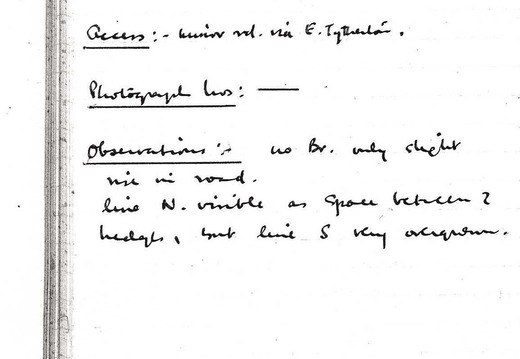 Access :- minor rd. via E. Tytherton.
Photograph Nos : —
Observations :- no Br. only slight
rise in road.
line N. visible as space between 2
hedges, but line S very overgrown.